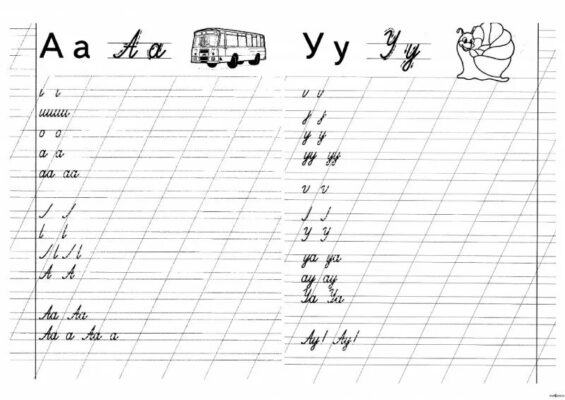 А а А а
ı ı
ишиш
о о
а а
аа аа
l l
А А
Аа Аа
Аа а Аа а
У у У у
у у
уу уу
У У
уа уа
ау ау
Уа Уа
Ау! Ау!